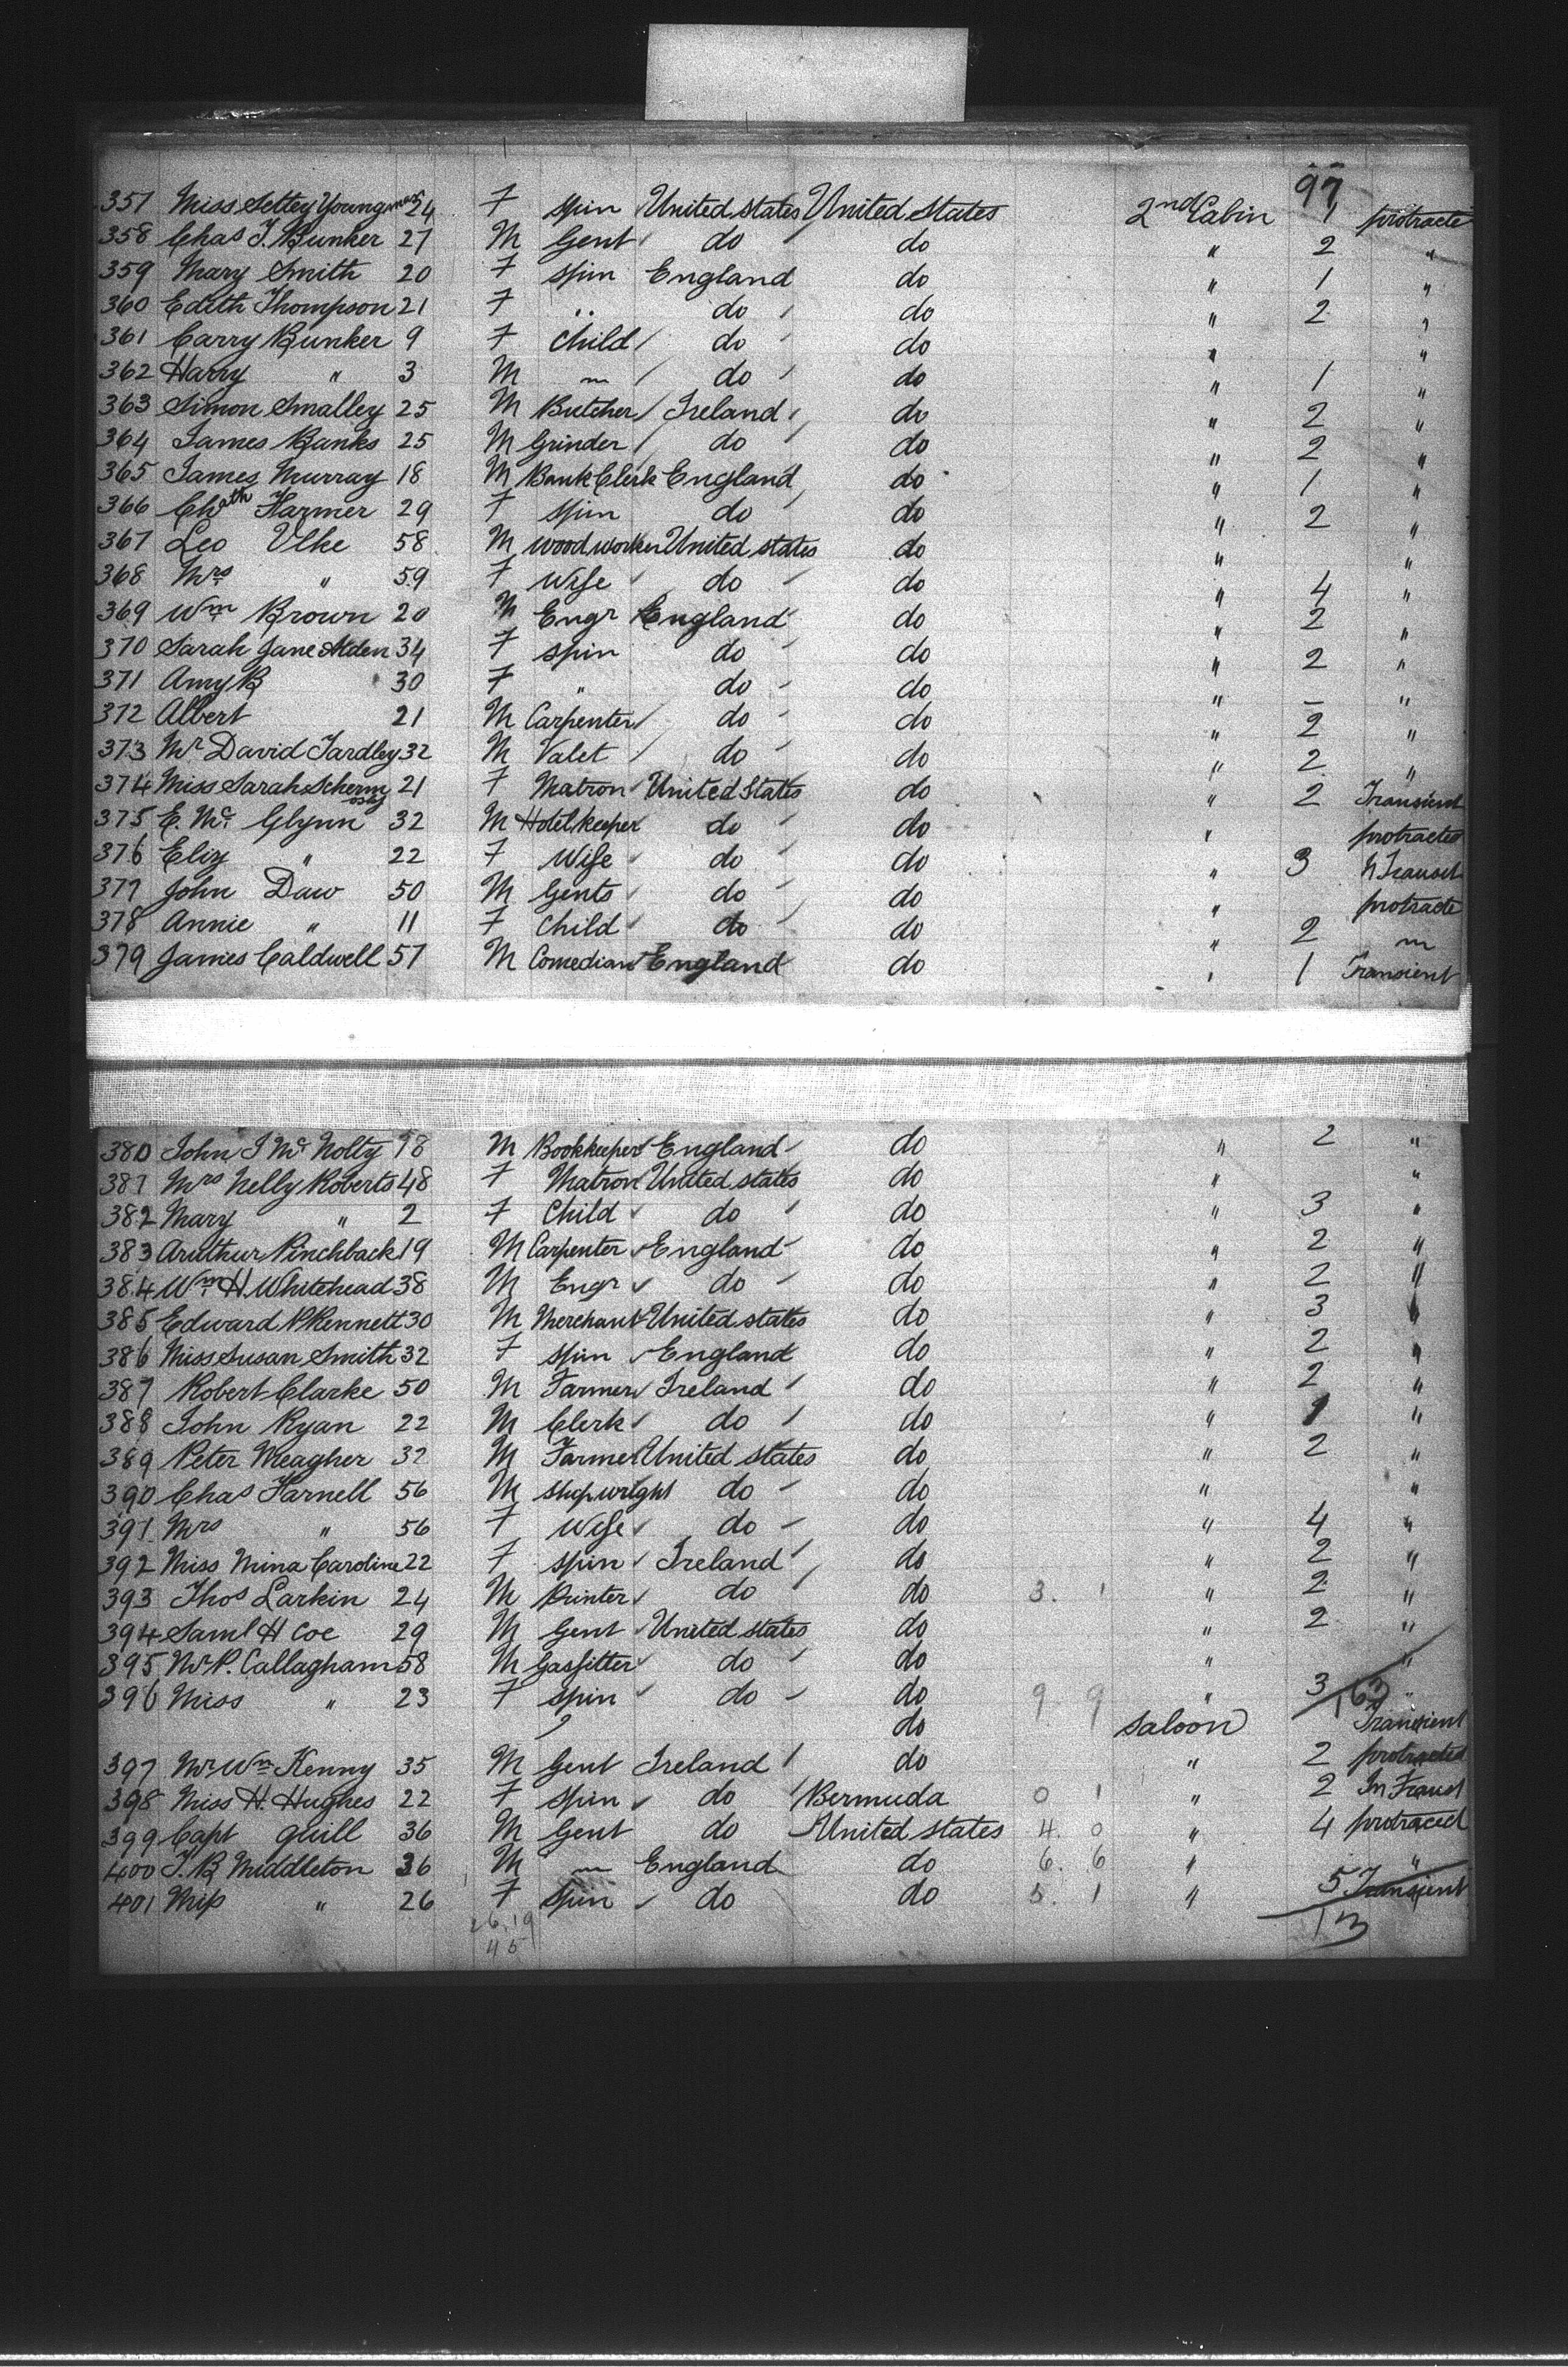 97
357 Miss Settey Youngman 24 F Spin United States United States 2nd Cabin 1 protracte
358 Chas T. Bunker 27 M Gent do do " 2 "
359 Mary Smith 20 F Spin England do " 1 "
360 Edith Thompson 21 F " do do " 2 "
361 Carry Bunker 9 F Child do do " "
362 Harry " 3 M " do do " 1 "
363 Simon Smalley 25 M Butcher Ireland do " 2 "
364 James Banks 25 M Grinder do do " 2 "
365 James Murray 18 M Bank Clerk England do " 1 "
366 Chath Farmer 29 F Spin do do " 2 "
367 Leo Ulke 58 M Wood worker United States do " "
368 Mrs " 59 F Wife do do " 4 "
369 Wm Brown 20 M Engr England do " 2 "
370 Sarah Jane Alden 34 F Spin do do " 2 "
371 Amy B 30 F " do do " – "
372 Albert 21 M Carpenter do do " 2 "
373 Mr David Tardley 32 M Valet do do " 2 "
374 Miss Sarah Schermosky 21 F Matron United States do " 2 Transient
375 E. Mc Glynn 32 M Hotelkeeper do do " protracted
376 Eliz " 22 F Wife do do " 3 Transit
377 John Daw 50 M Gents do do " protracte
378 Annie " 11 F Child do do " 2 "
379 James Caldwell 57 M Comedian England do " 1 Transient
380 John J Mc Nolty 18 M Bookkeeper England do " 2 "
381 Mrs Nelly Roberts 48 F Matron United States do " "
382 Mary " 2 F Child do do " 3 "
383 Aruthur Pinchback 19 M Carpenter England do " 2 "
384 Wm H. Whitehead 38 M Engr do do " 2 "
385 Edward P Rennett 30 M Merchant United States do " 3 "
386 Miss Susan Smith 32 F Spin England do " 2 "
387 Robert Clarke 50 M Farmer Ireland do " 2 "
388 John Ryan 22 M Clerk do do " 1 "
389 Peter Meagher 32 M Farmer United States do " 2 "
390 Chas Farnell 56 M Shipwright do do " "
391 Mrs " 56 F Wife do do " 4 "
392 Miss Mina Caroline 22 F Spin Ireland do " 2 "
393 Thos Larkin 24 M Printer do do 3. 1 " 2 "
394 Saml H Coe 29 M Gent United States do " 2 "
395 Mr P. Callagham 58 M Gasfitter do do " "
396 Miss " 23 F Spin do do 9 9 " 3 "
163
do Saloon Transient
397 Mr Wm Kenny 35 M Gent Ireland do " 2 protracted
398 Miss H. Hughes 22 F Spin do Bermuda 0 1 " 2 In Transit
399 Capt Quill 36 M Gent do United States 4. 0 " 4 protraced
400 T. B Middleton 36 M " England do 6. 6 " "
401 Miss " 26 F Spin do do 5. 1 " 5 Transient
26.19
45
13